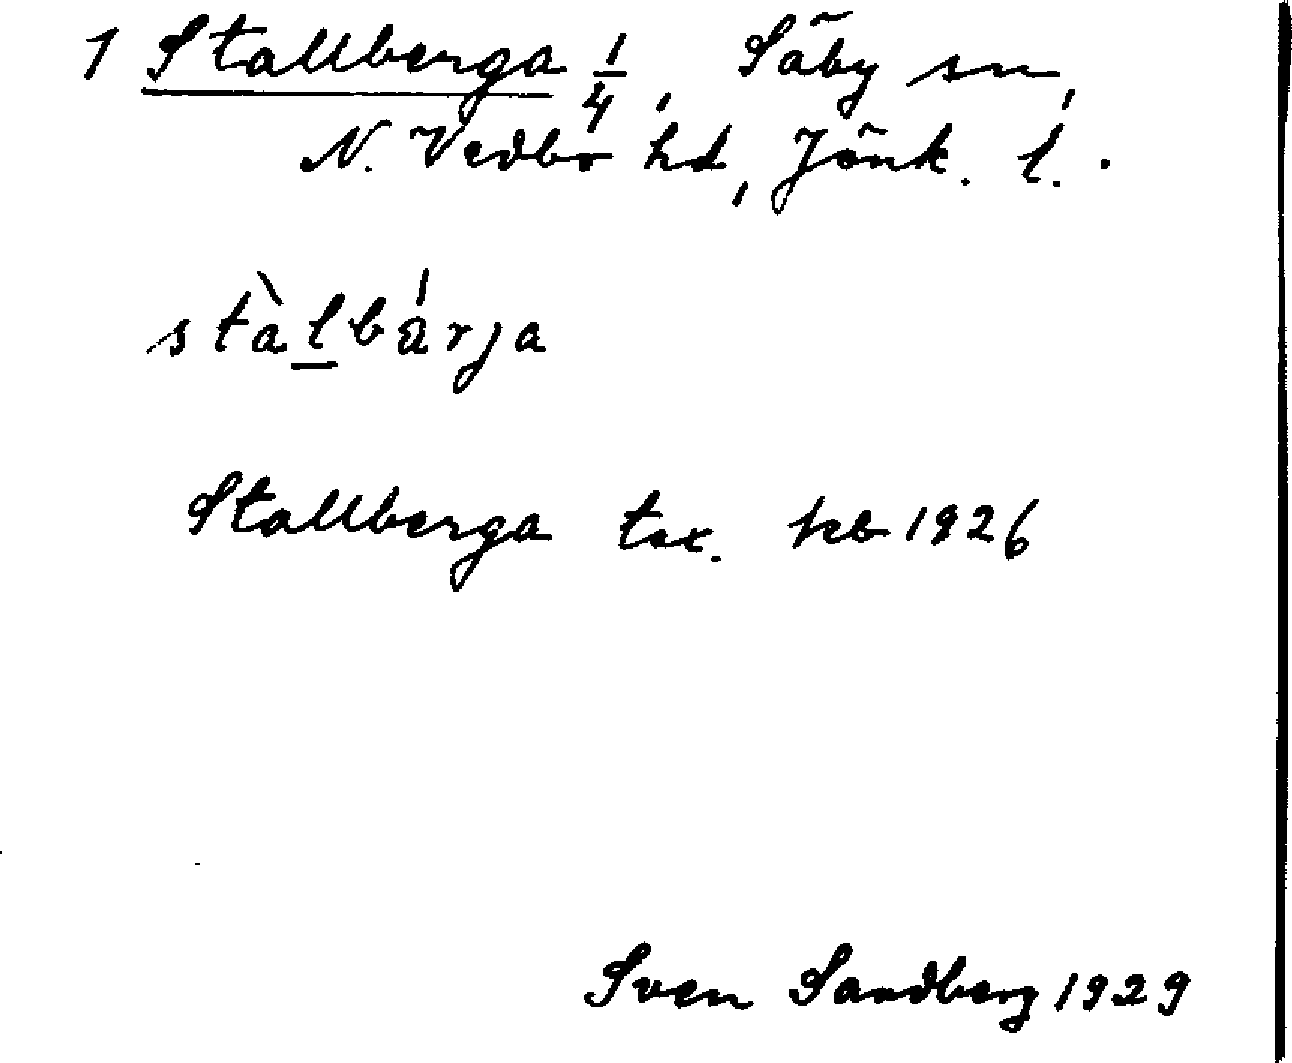 1 Stallberga 1/4, Säby sn,
N. Vedbo hd, Jönk. l.
stàlbárja
Stallberga tax. feb 1926
Sven Sandberg 1929